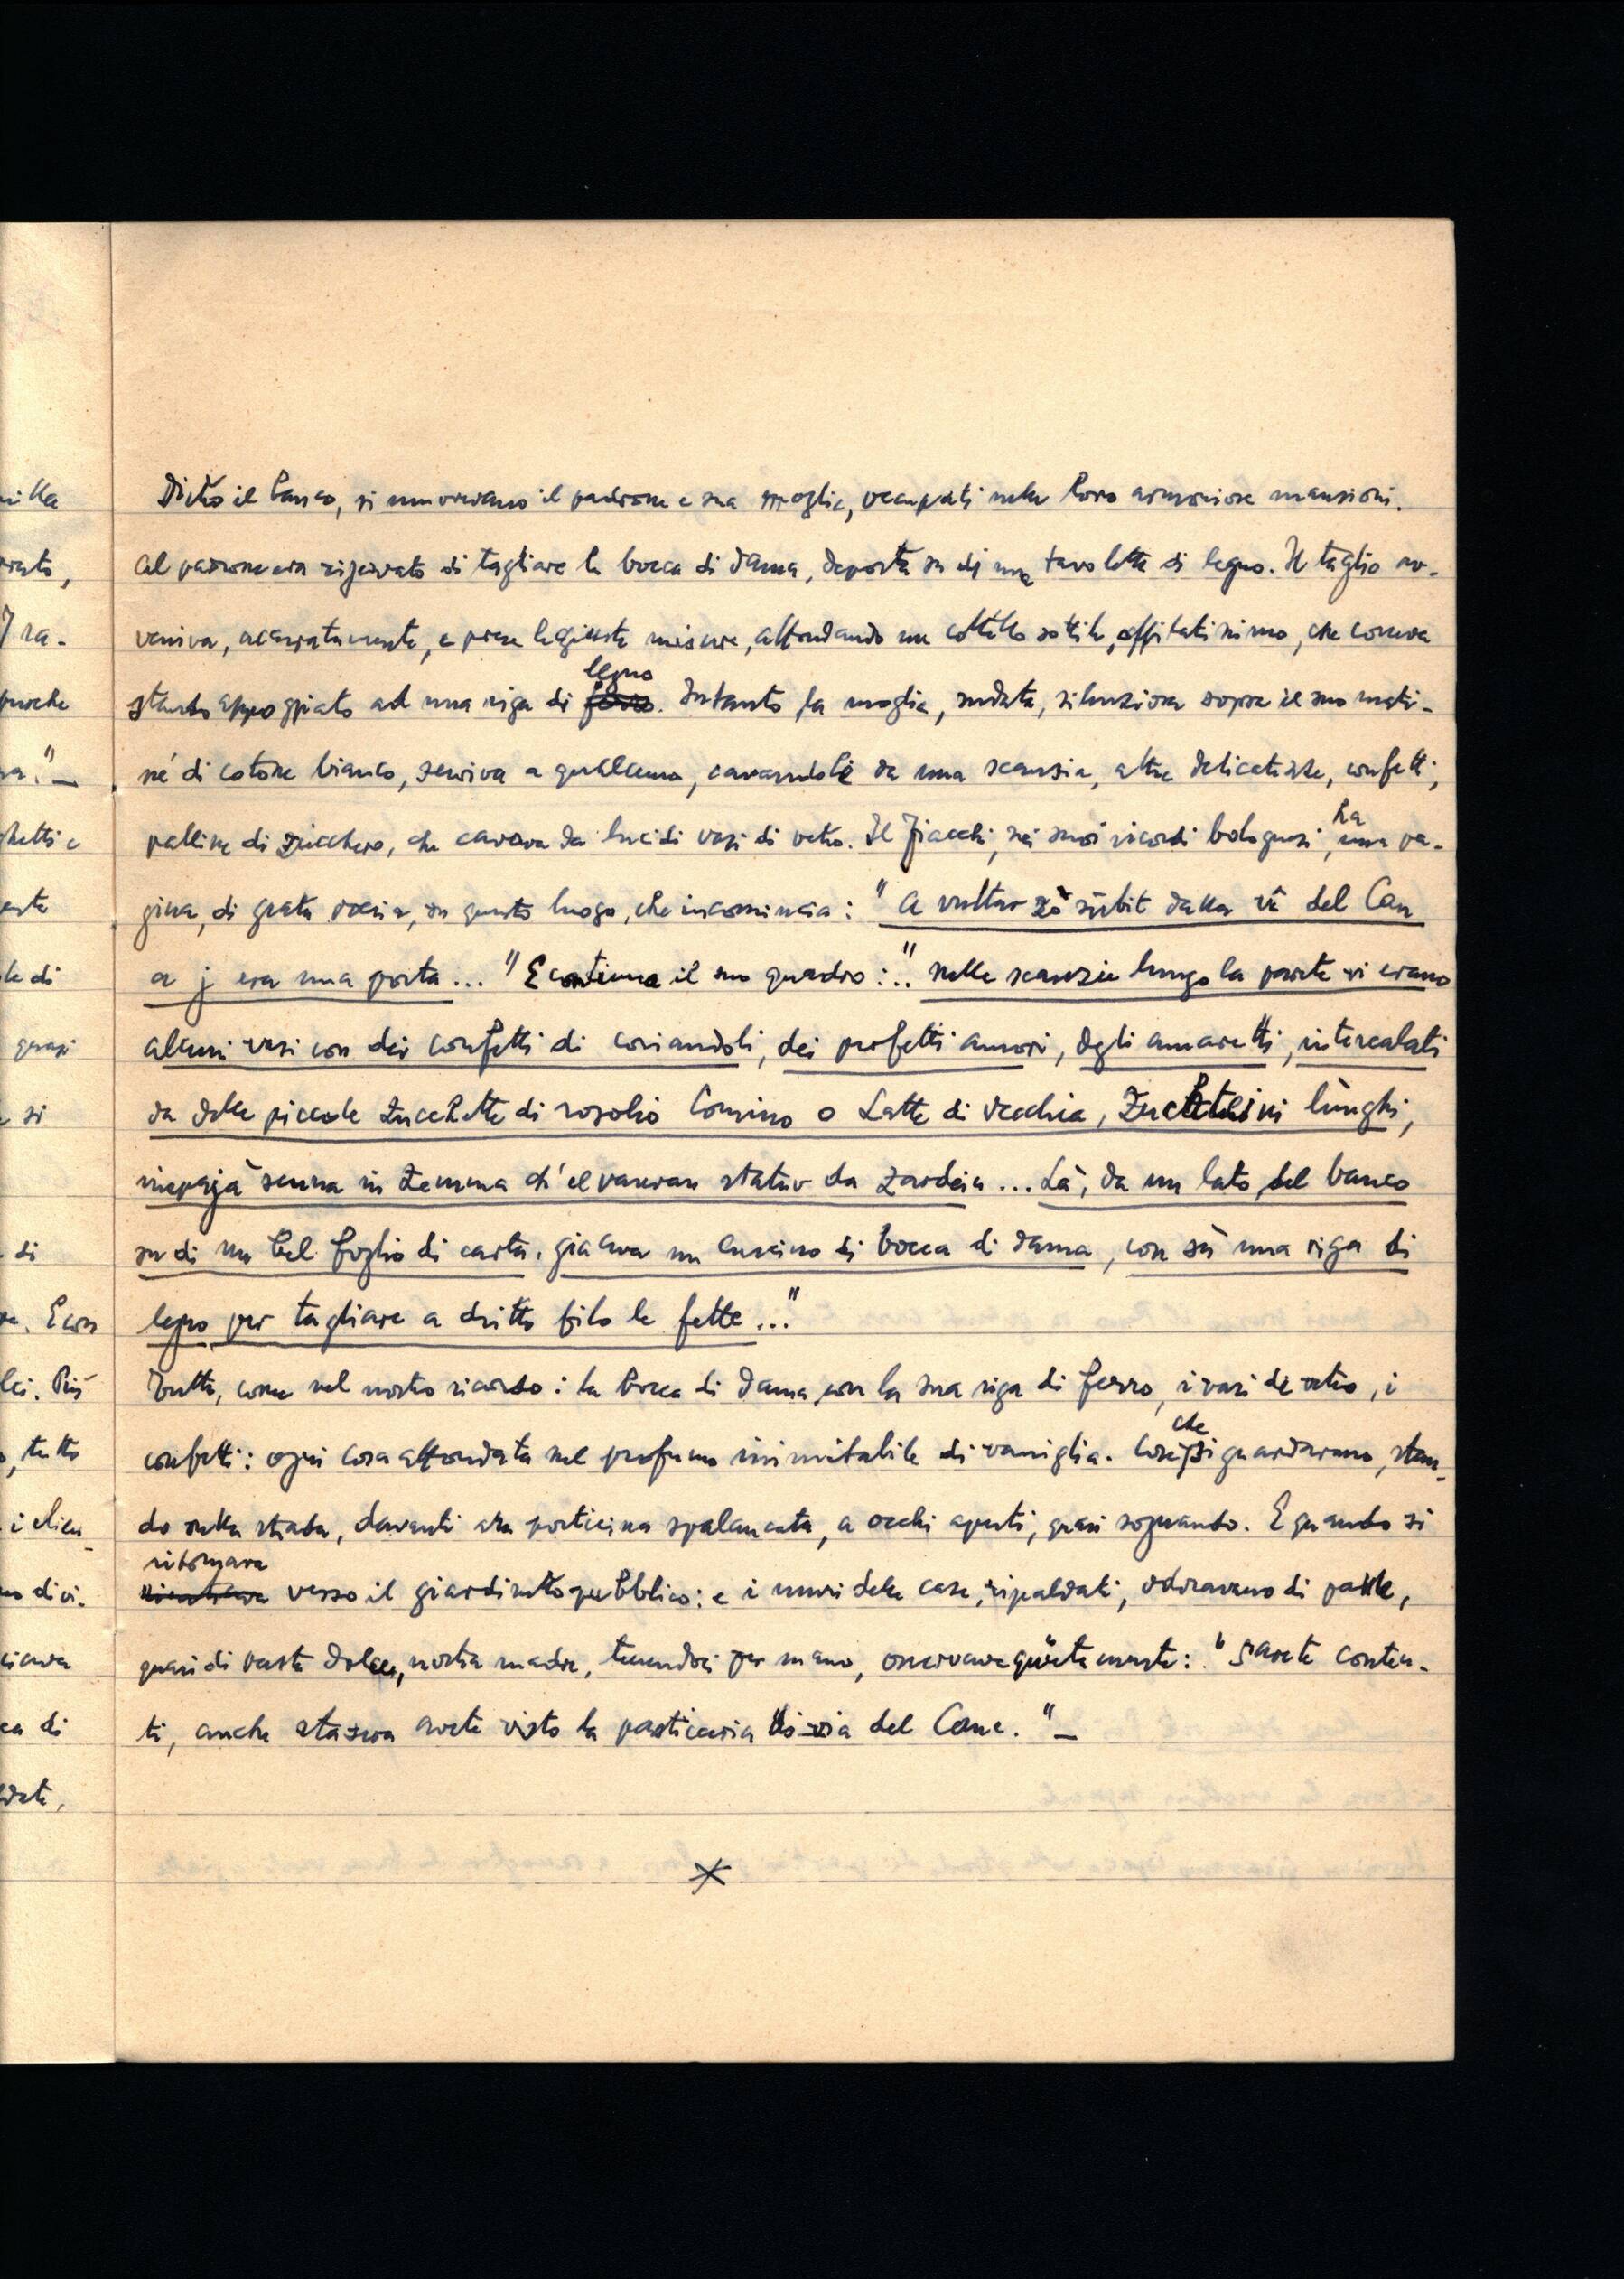 Dietro il banco, si muovevano il padrone e sua moglie, occupati nelle loro armoniose mansioni.
Al padrone era riservato di tagliare la bocca di dama, deposta su di una tavoletta di legno. Il taglio av-
veniva, accuratamente, e prese le giuste misure, affondando un coltello sottile, affilatissimo, che correva
stando appoggiato ad una riga di legno. Intanto, la moglie, sudata, silenziosa sopra il suo mati-
né di cotone bianco, serviva a qualcuno, cavandole da una scansia, altre delicatezze, confetti,
palline di zucchero, che cavava da lucidi vasi di vetro. Il Fiacchi, nei suoi ricordi bolognesi, ha una pa-
gina, di grata poesia, su questo luogo, che incomincia: "A vultar zò sùbit dalla vî del Can
a j era una porta..." E continua il suo quadro: ".. nelle scanzie lungo la parete vi erano
alcuni vasi con dei confetti di coriandoli, dei perfetti amori, degli amaretti, intercalati
da delle piccole zucchette di rosolio Comino o Latte di Vecchia, lùnghi,
senna in zemma ch'el statuv da zardein... Là, da un lato, del banco
su di un bel foglio di carta, giaceva un cuscino di bocca di dama, con sù una riga di
legno per tagliare a dritto filo le fette..."
Tutto, come nel nostro ricordo: la bocca di dama con la sua riga di ferro, i vasi di vetro, i
confetti: ogni cosa affondata nel profumo inimitabile di vaniglia. Cose che si guardavano, stan-
do sulla strada, davanti alla porticina spalancata, a occhi aperti, quasi sognando. E quando si
ritornava verso il giardinetto pubblico: e i muri delle case, riscaldati, odoravano di pane,
quasi di pasta dolce, nostra madre, tenendoci per mano, osservava quietamente: "Sarete conten-
ti, anche stasera avete visto la pasticceria di via del Cane." —
*
nella
pa." —
ghetti e
le di
quasi
si
di
re. E con
lci. Più
o, tutto
i clien-
ca di